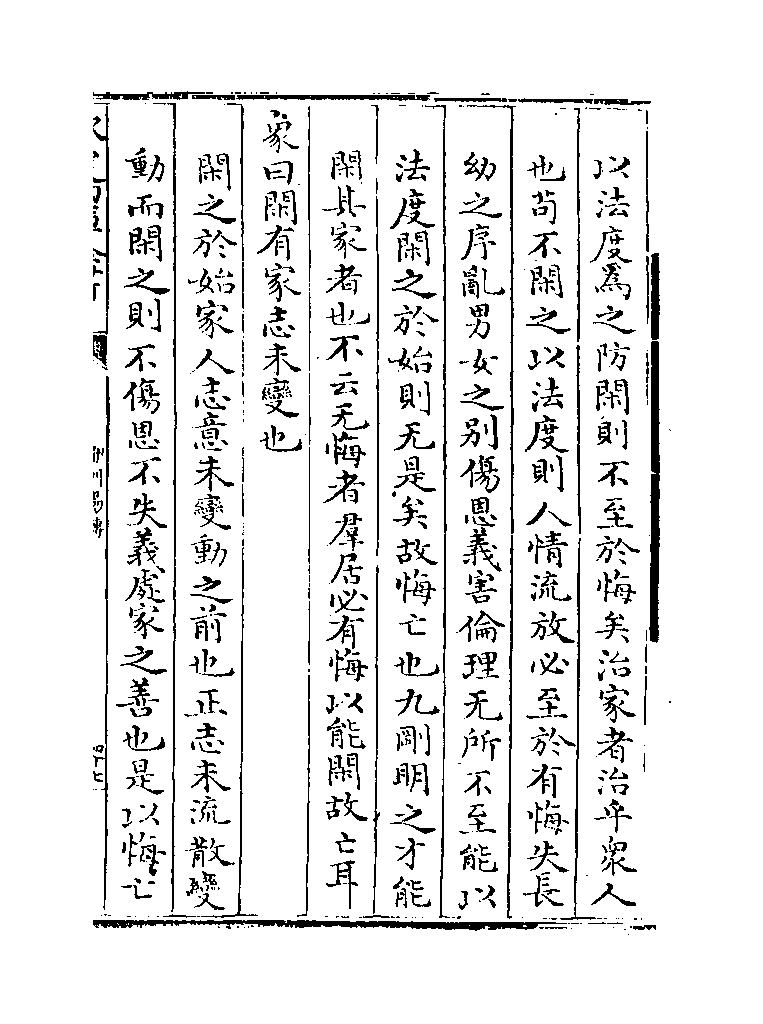 以法度為之防閑則不至於悔矣治家者治乎衆人
也苟不閑之以法度則人情流放必至於有悔失長
幼之序亂男女之別傷恩義害倫理无所不至能以
法度閑之於始則无是矣故悔亡也九剛明之才能
閑其家者也不云无悔者羣居必有悔以能閑故亡耳
象曰閑有家志未變也
閑之於始家人志意未變動之前也正志未流散變
動而閑之則不傷恩不失義處家之善也是以悔亡